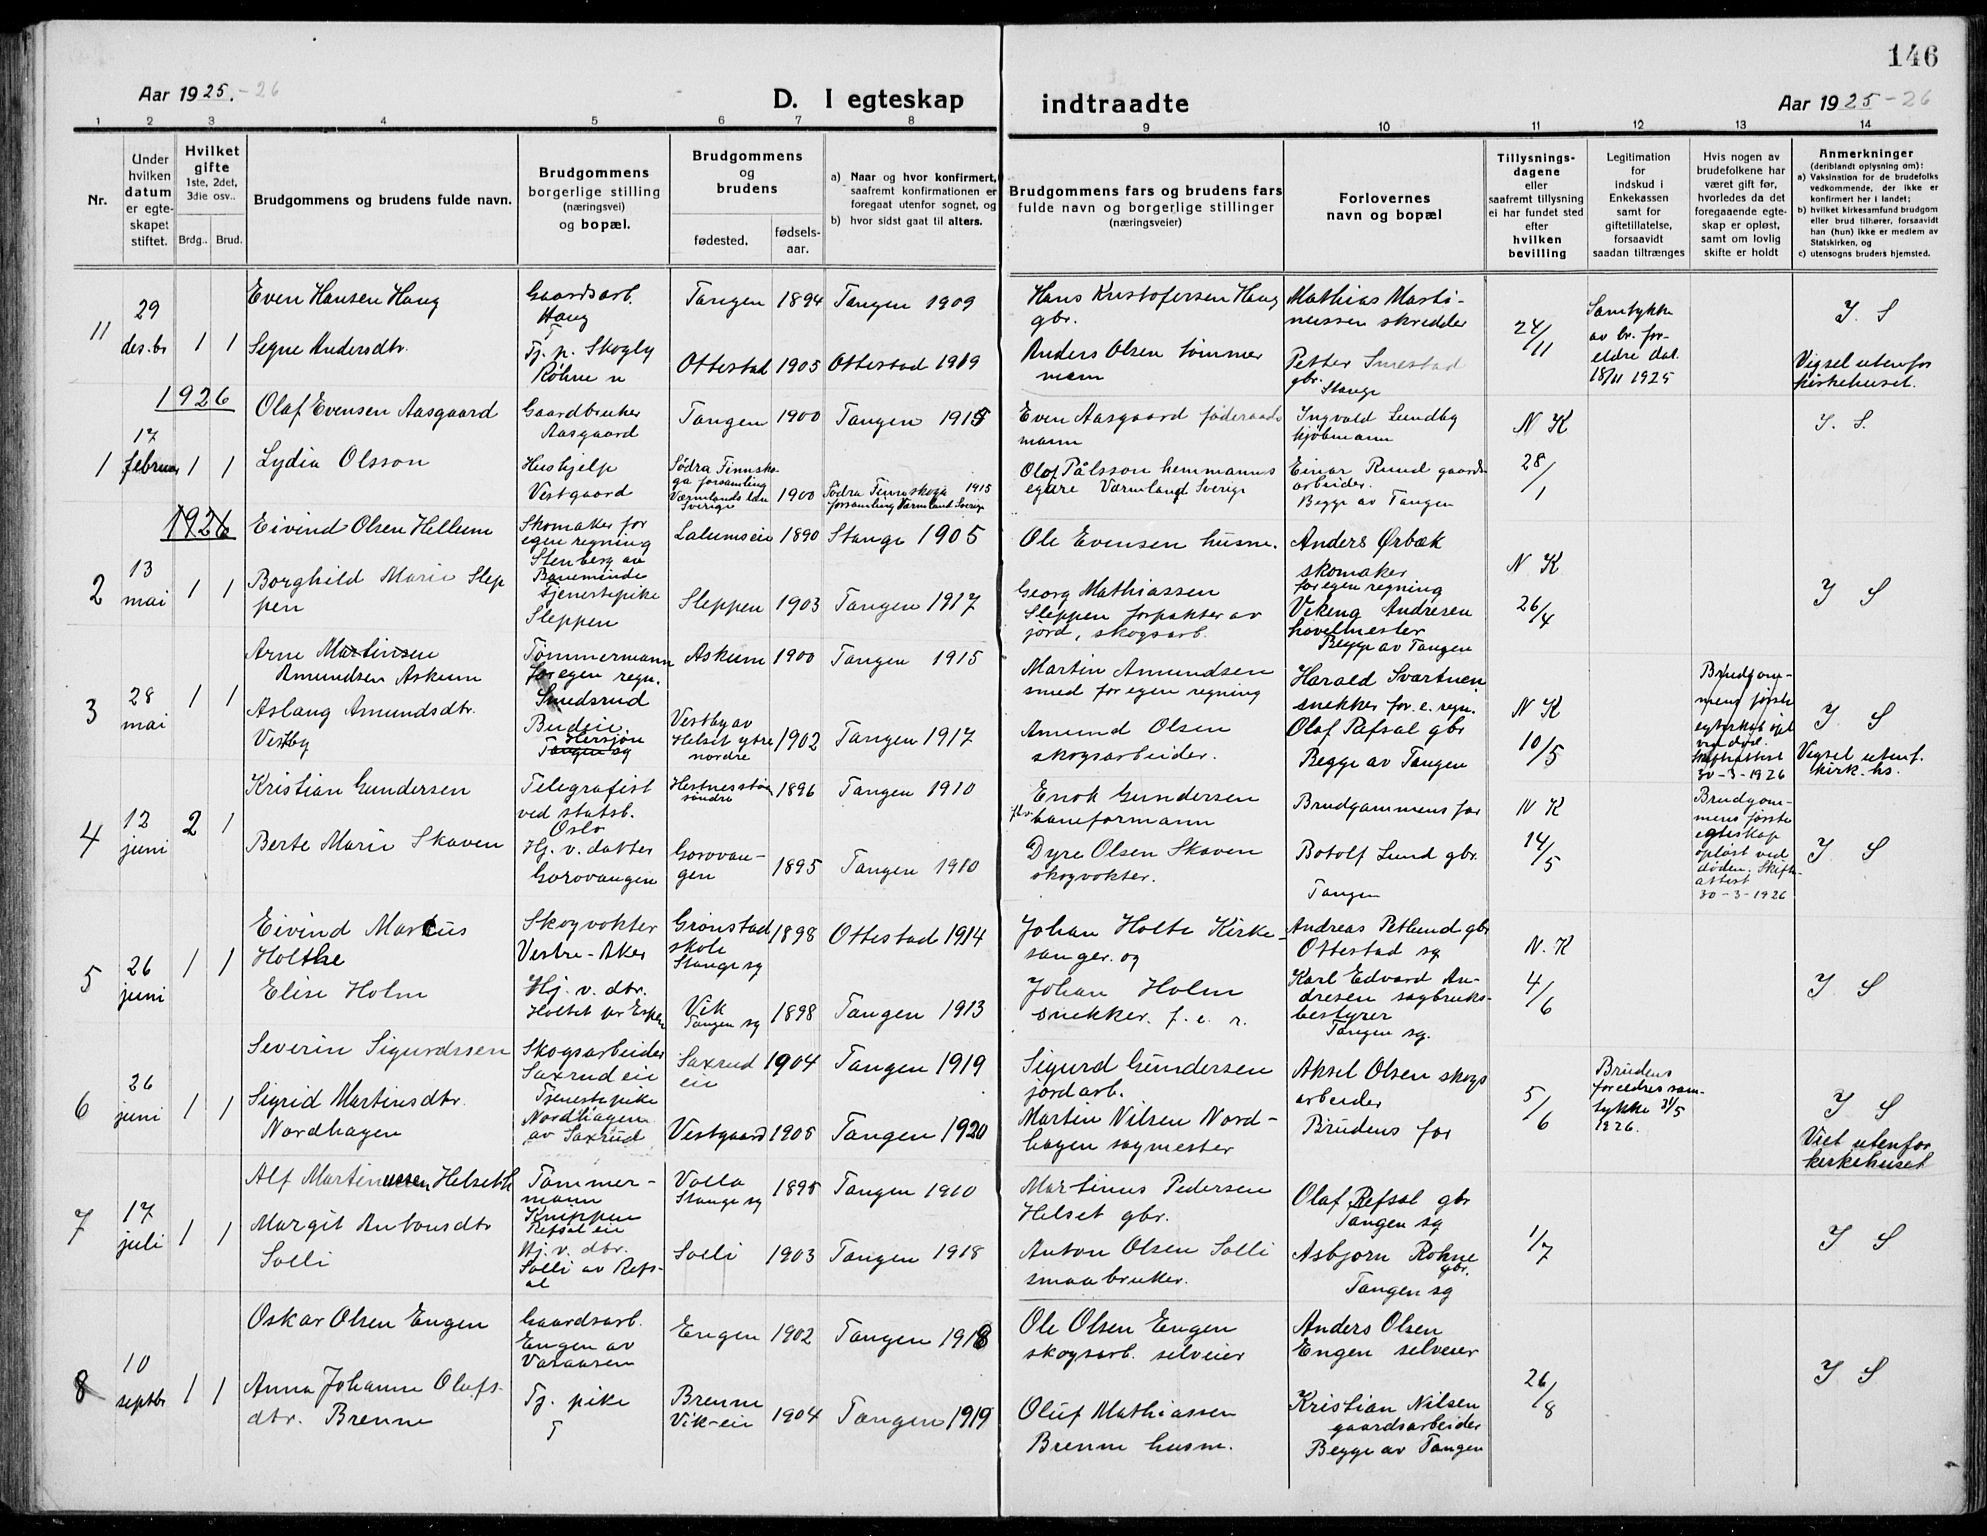 146
Aar 1925.-26
D. I egteskap
indtraadte
Aar 1925-26
1 2 3 4 5 6 7 8 9 10 11 12 13 14
Nr.
Under
hvilken
datum
er egte-
skapet
stiftet.
Hvilket
gifte
1ste, 2det,
3die osv..
Brdg.. Brud.
Brudgommens og brudens fulde navn.
Brudgommens
borgerlige stilling
(næringsvei)
og bopæl.
Brudgommens
og
brudens
fødested.
fødsels-
aar.
a) Naar og hvor konfirmert,
saafremt konfirmationen er
foregaat utenfor sognet, og
b) hvor sidst gaat til alters.
Brudgommens fars og brudens fars
fulde navn og borgerlige stillinger
(næringsveier)
Forlovernes
navn og bopæl
Tillysnings-
dagene
eller
saafremt tillysning
ei har fundet sted
efter
hvilken
bevilling
Legitimation
for
indskud i
Enkekassen
samt for
giftetillatelse,
forsaavidt
saadan tiltrænges
Hvis nogen av
brudefolkene har
været gift før,
hvorledes da det
foregaaende egte-
skap er opløst,
samt om lovlig
skifte er holdt
Anmerkninger
(deriblandt oplysning om):
a) Vaksination for de brudefolks
vedkommende, der ikke er
konfirmert her i landet;
b) hvilket kirkesamfund brudgom
eller brud tilhører, forsaavidt
han (hun) ikke er medlem av
Statskirken, og
c) utensogns bruders hjemsted.
11
29
des.br
1 1
Even Hansen Haug
Signe Andersdtr.
Gaardsarb.
Haug
T
Tj. p. Skogly
Rohne n
Tangen 1894 Tangen 1909
Ottestad 1905 Ottestad 1919
Hans Kristofersen Haug
gbr.
Anders Olsen tømmer
mann
Mathias Marti-
niussen skredder
Petter Smestad
gbr.
Stange
24/11
Samtykke
av br. for-
eldre dat.
18/11 1925
I. S
Vigsel utenfor
kirkehuset.
1926
1
17
februar
1 1
Olaf Evensen Aasgaard
Lydia Olsson
Gaardbruker
Aasgaard
Hushjelp
Vestgaard
Tangen 1900 Tangen 1915
Södra Finnsko
ga forsamling
Værmlands län
Sverige
1900
Södra Finnskoga 1915
forsamling Värmland Sverige
Even Aasgaard føderaads
mann
Olof Pålsson hemmanns
egare Värmland Sverige
Ingvald Lundby
kjøbmann
Einar Rund gaards
arbeider.
Begge av Tangen
N K
28/1
I. S.
1926
2
13
mai
1 1
Eivind Olsen Hellum
Borghild Marie Slep
pen
Skomaker for
egen regning
Stenberg av
Baneminde
Tjenestepike
Sleppen
Lalumseie 1890 Stange 1905
Sleppen 1903 Tangen 1917
Ole Evensen husm.
Georg Mathiassen
Sleppen forpakter av
jord, skogsarb.
Anders Ørbæk
skomaker
for egen regning
Viking Andresen
hovelmester
Begge av Tangen
N K
26/4
I S
3
28
mai
1 1
Arne Martinsen
Amundsen Askum
Aslaug Amundsdtr.
Vestby
Tømmermann
for egen regn.
Smedsrud
Budeie
Hersjøn
Tangen og
Askum 1900 Tangen 1915
Vestby av
Helset ytre
nordre
1902 Tangen 1917
Martin Amundsen
smed for egen regning
Amund Olsen
skogsarbeider.
Harald Svartuen
snekker for e. regn.
Olaf Refsal gbr
Begge av Tangen
N K
10/5
Brudgom-
mens første
egteskab opl
ved død.
30-3-1926
I S
Vigsel utenf.
kirk. hs.
4
12
juni
2 1
Kristian Gundersen
Berte Marie Skaven
Telegrafist
ved statsb.
Oslo
Hj. v. datter
Gorovangen
Hestnesstøa
søndre
1896 Tangen 1910
Gorovan-
gen
1895 Tangen 1910
Enok Gundersen
fhv. baneformann
Dyre Olsen Skaven
skogvokter.
Brudgommens far
Botolf Lund gbr.
Tangen
N K
14/5
Brudgom-
mens første
egteskap
opløst ved
døden. Skifte-
attest
30-3-1926
I S
5
26
juni
1 1
Eivind Marius
Holthe
Elise Holm
Skogvokter
Vestre-Aker
Hj. v. dtr.
Holtet av Espen
Grønstad
skole
Stange sg
1898 Ottestad 1914
Vik
Tangen sg
1898 Tangen 1913
Johan Holte Kirke-
sanger. og
Johan Holm
snekker. f. e. r.
Andreas Petlund gbr
Ottestad sg
Karl Edvard An-
dresen sagbruks-
bestyrer
Tangen sg.
N. K
4/6
I S
6
26
juni
1 1
Severin Sigurdssen
Sigrid Martinsdtr.
Nordhagen
Skogsarbeider
Saxrud eie
Tjenestepike
Nordhagen
av Saxrud
Saxrud
eie
1904 Tangen 1919
Vestgaard 1905 Tangen 1920
Sigurd Gundersen
jordarb.
Martin Nilsen Nord-
hagen sagmester
Aksel Olsen skogs
arbeider
Brudens far
5/6
Brudens
foreldres sam-
tykke 31/5
1926.
I S
Viet utenfor
kirkehuset
7
17
juli
1 1
Alf Martinussen Helseth
Margit Antonsdtr
Solli
Tømmer-
mann
Knippen
Refsal eie
Hj. v. dtr.
Solli av Refs-
al
Volla
Stange sg
1895 Tangen 1910
Solli 1903 Tangen 1918
Martinus Pedersen
Helset gbr.
Anton Olsen Solli
smaabruker.
Olaf Refsal gbr
Tangen sg
Asbjørn Rohne
gbr.
Tangen sg
1/7
I S
8
10
septbr
1 1
Oskar Olsen Engen
Anna Johanne Olufs-
dtr. Brenne
Gaardsarb.
Engen av
Vasaasen
Tj. pike
T
Engen 1902 Tangen 1918
Brenne
Vik-eie
1904 Tangen 1919
Ole Olsen Engen
skogsarb. selveier
Oluf Mathiassen
Brenne husm.
Anders Olsen
Engen selveier
Kristian Nilsen
gaardsarbeider
Begge av Tangen
26/8
I S